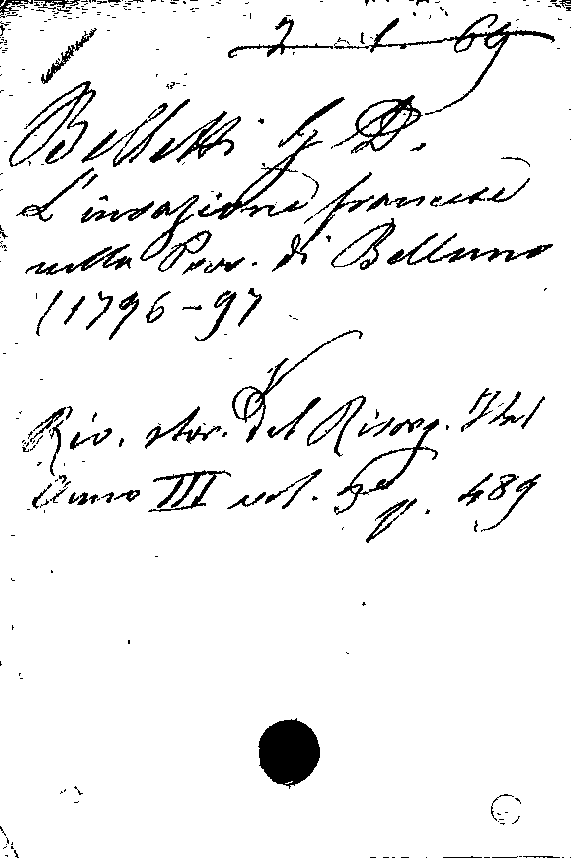 2. 1. 69
Belletti G D.
L'invazione francese
nella Prov. di Belluno
(1796-97
Riv. stor. del Risorg. Ital
Anno III vol. 3º
p. 489